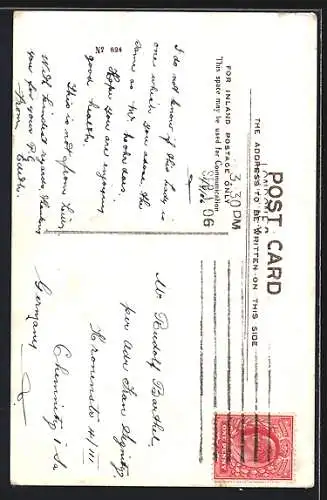 POST CARD
THE ADDRESS TO BE WRITTEN ON THIS SIDE
FOR INLAND POSTAGE ONLY
This space may be used for Communication
3.30 PM
06
No 694
I do not know if this lady is
one which you asked the
same as Mr.
Hope you are enjoying
good health,
This is not from
With kindest regards, thanking
you for your P.C
From
Mr Rudolf Barthel,
per Adr Frau
Kronenstr 41/III
Chemnitz i/Sa
Germany
ONE PENNY